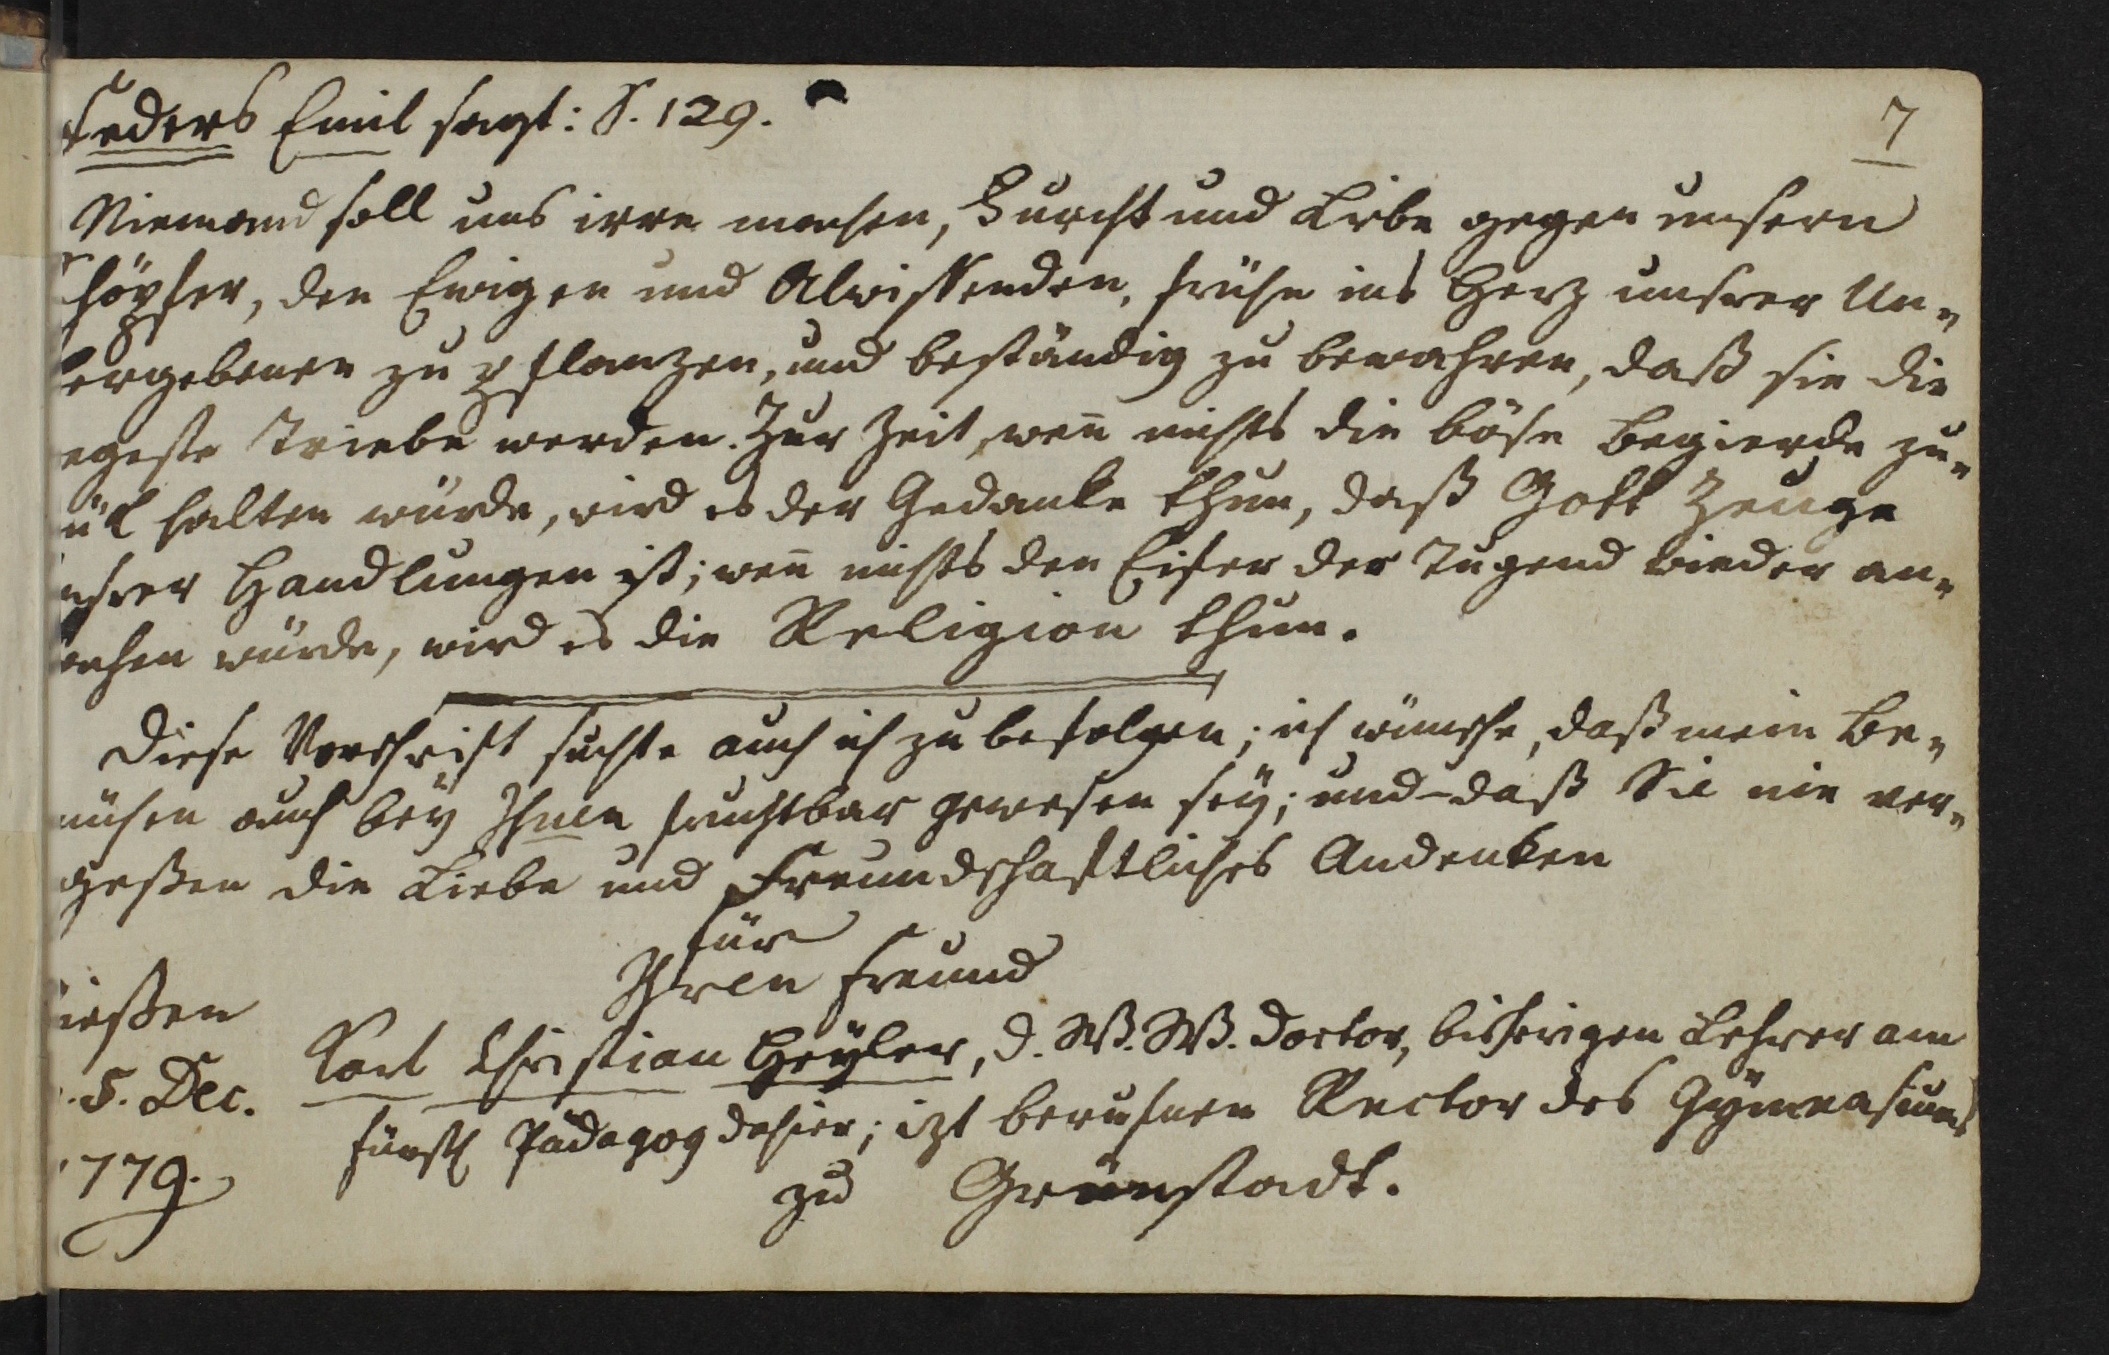 Feders Emil sagt: S. 129.
7
Niemand soll uns irre machen, Furcht und Liebe gegen unsern
Schöpfer, den Ewigen und Alwissenden, frühe ins Herz unsrer Un-
tergebenen zu pflanzen, und beständig zu bewahren, daß sie die
regeste Triebe werden. Zur Zeit, weñ nichts die böse Begierde zu-
rük halten würde, wird es der Gedanke thun, daß Gott Zeuge
unsrer Handlungen ist; weñ nichts den Eifer der Tugend wieder an-
fachen würde, wird es die Religion thun.
Diese Vorschrift suchte auch ich zu befolgen; ich wünsche, daß mein Be-
mühen auch bey Ihnen fruchtbar gewesen sey; und daß Sie nie ver-
geßen die Liebe und Freundschaftliches Andenken
für
Ihren Freund
Gießen
Karl Christian Heyler, d. WW. Doctor, bisherigen Lehrer am
d. 5. Dec.
fürstl Pädagog dahier; izt berufnen Rector des Gymnasiums
1779.
zu Grünstadt.